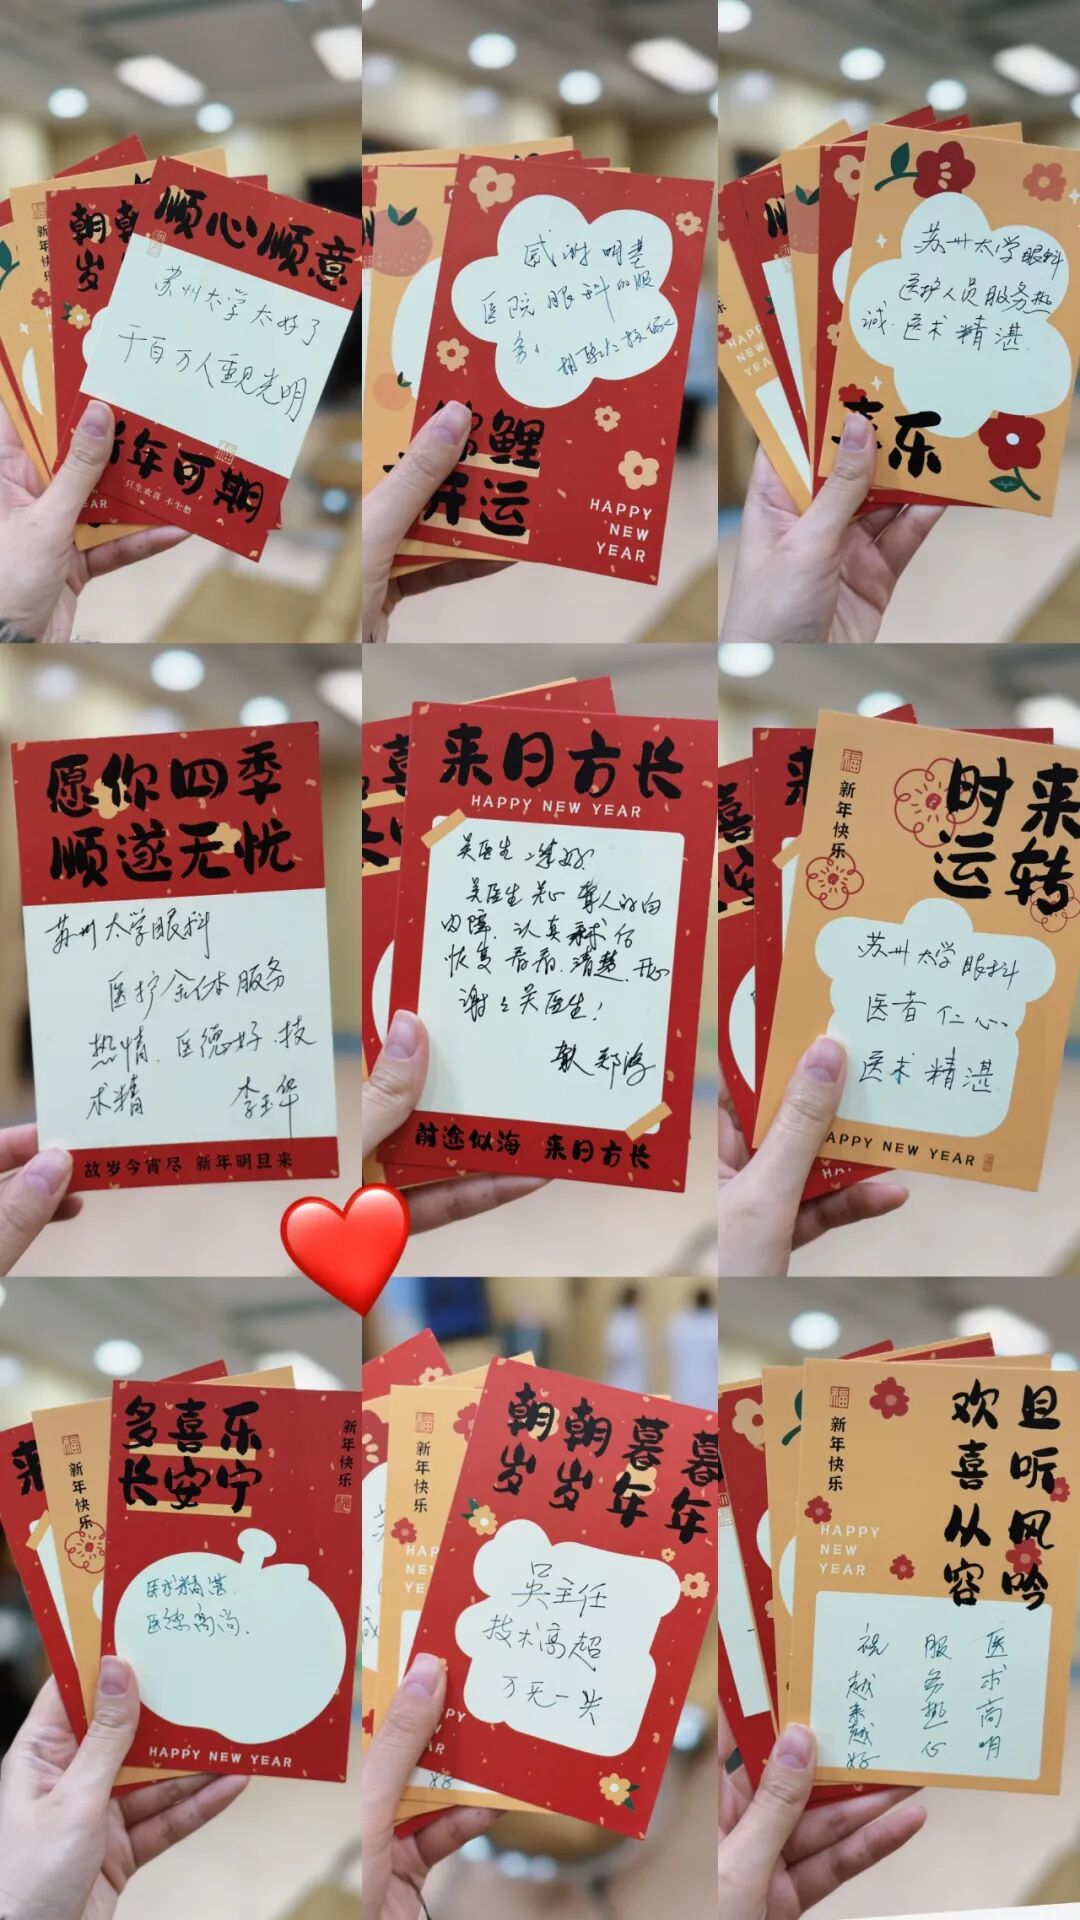 顺心顺意
苏州大学太好了
千百万人重见光明
新年可期
只生欢喜 不生愁
朝朝
岁
新年快乐
感谢明基
医院眼科的服
务
锦鲤
开运
HAPPY
NEW
YEAR
苏州大学眼科
医护人员服务热
诚.医术精湛.
喜乐
HAPPY
NEW
YEAR
愿你四季
顺遂无忧
苏州大学眼科
医护全体服务
热情.医德好.技
术精 李玉华
故岁今宵尽 新年明旦来
来日方长
HAPPY NEW YEAR
吴医生您好
吴医生关心
内障.认真
恢复 清楚.开心
谢谢吴医生!
前途似海 来日方长
福
新年快乐
时来
运转
苏州大学眼科
医者仁心
医术精湛
HAPPY NEW YEAR
多喜乐
长安宁
新年快乐
福
医术精湛.
医德高尚.
HAPPY NEW YEAR
福
新年快乐
朝朝暮暮
岁岁年年
吴主任
技术高超
万无一失
福
新年快乐
HAPPY
NEW
YEAR
好
福
新年快乐
HAPPY
NEW
YEAR
且听风吟
欢喜从容
医术高明
服务热心
祝越来越好